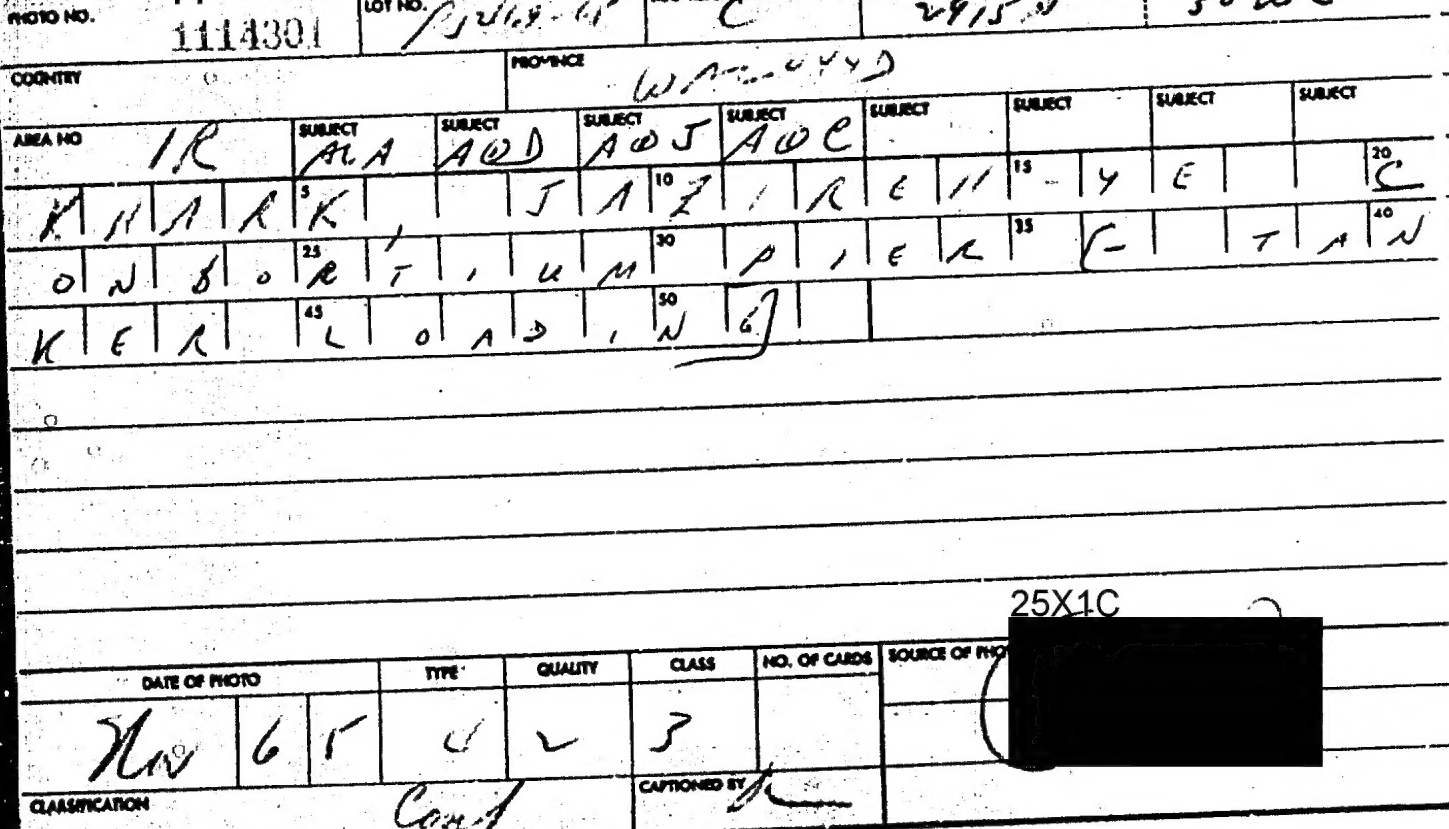 PHOTO NO. 1114301 LOT NO. C 2915N
COUNTRY PROVINCE
AREA NO IR SUBJECT ALA SUBJECT A0D SUBJECT A0J SUBJECT A0C SUBJECT SUBJECT SUBJECT SUBJECT
KHARK, JAZIREH-YE C
ONSORTIUM PIER - TAN
KER LOADING
25X1C
DATE OF PHOTO TYPE QUALITY CLASS NO. OF CARDS SOURCE OF PHO
Nov 65 4 2 3
CLASSIFICATION Conf CAPTIONED BY